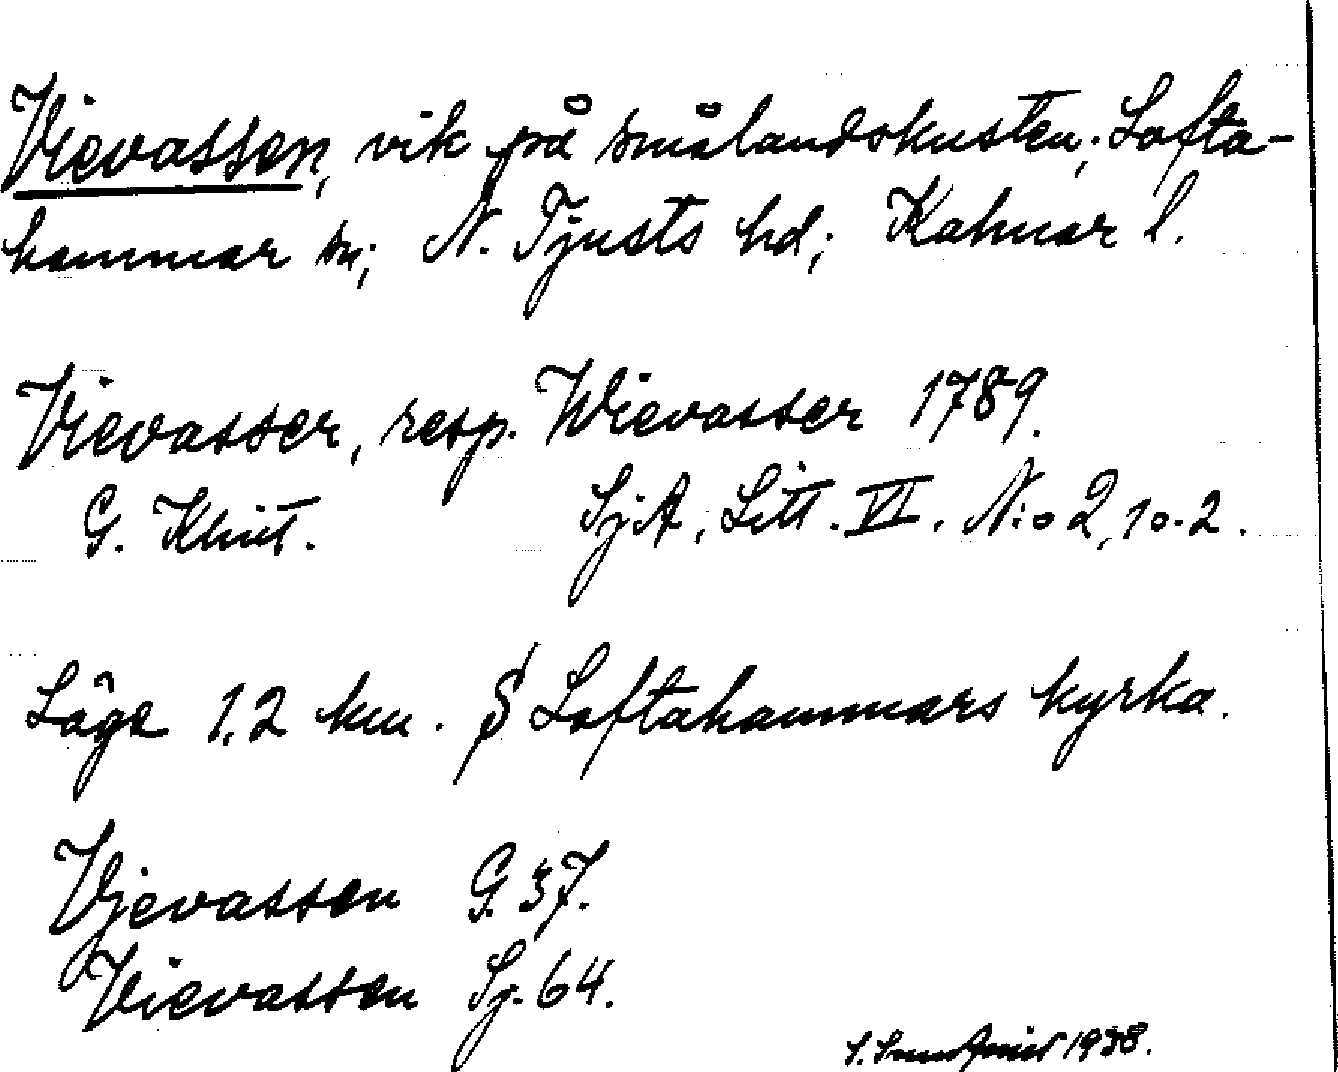 Vievassen, vik på smålandskusten; Lofta-
hammar sn; N. Tjusts hd; Kalmar l.
Vievasser, resp. Wievasser 1789.
G. Klint. SjA, Litt. VI. N:o 2, 10.2.
Läge 1,2 km. S Loftahammars kyrka.
Vjevassen G. 37.
Vievassen Sj. 64.
1938.